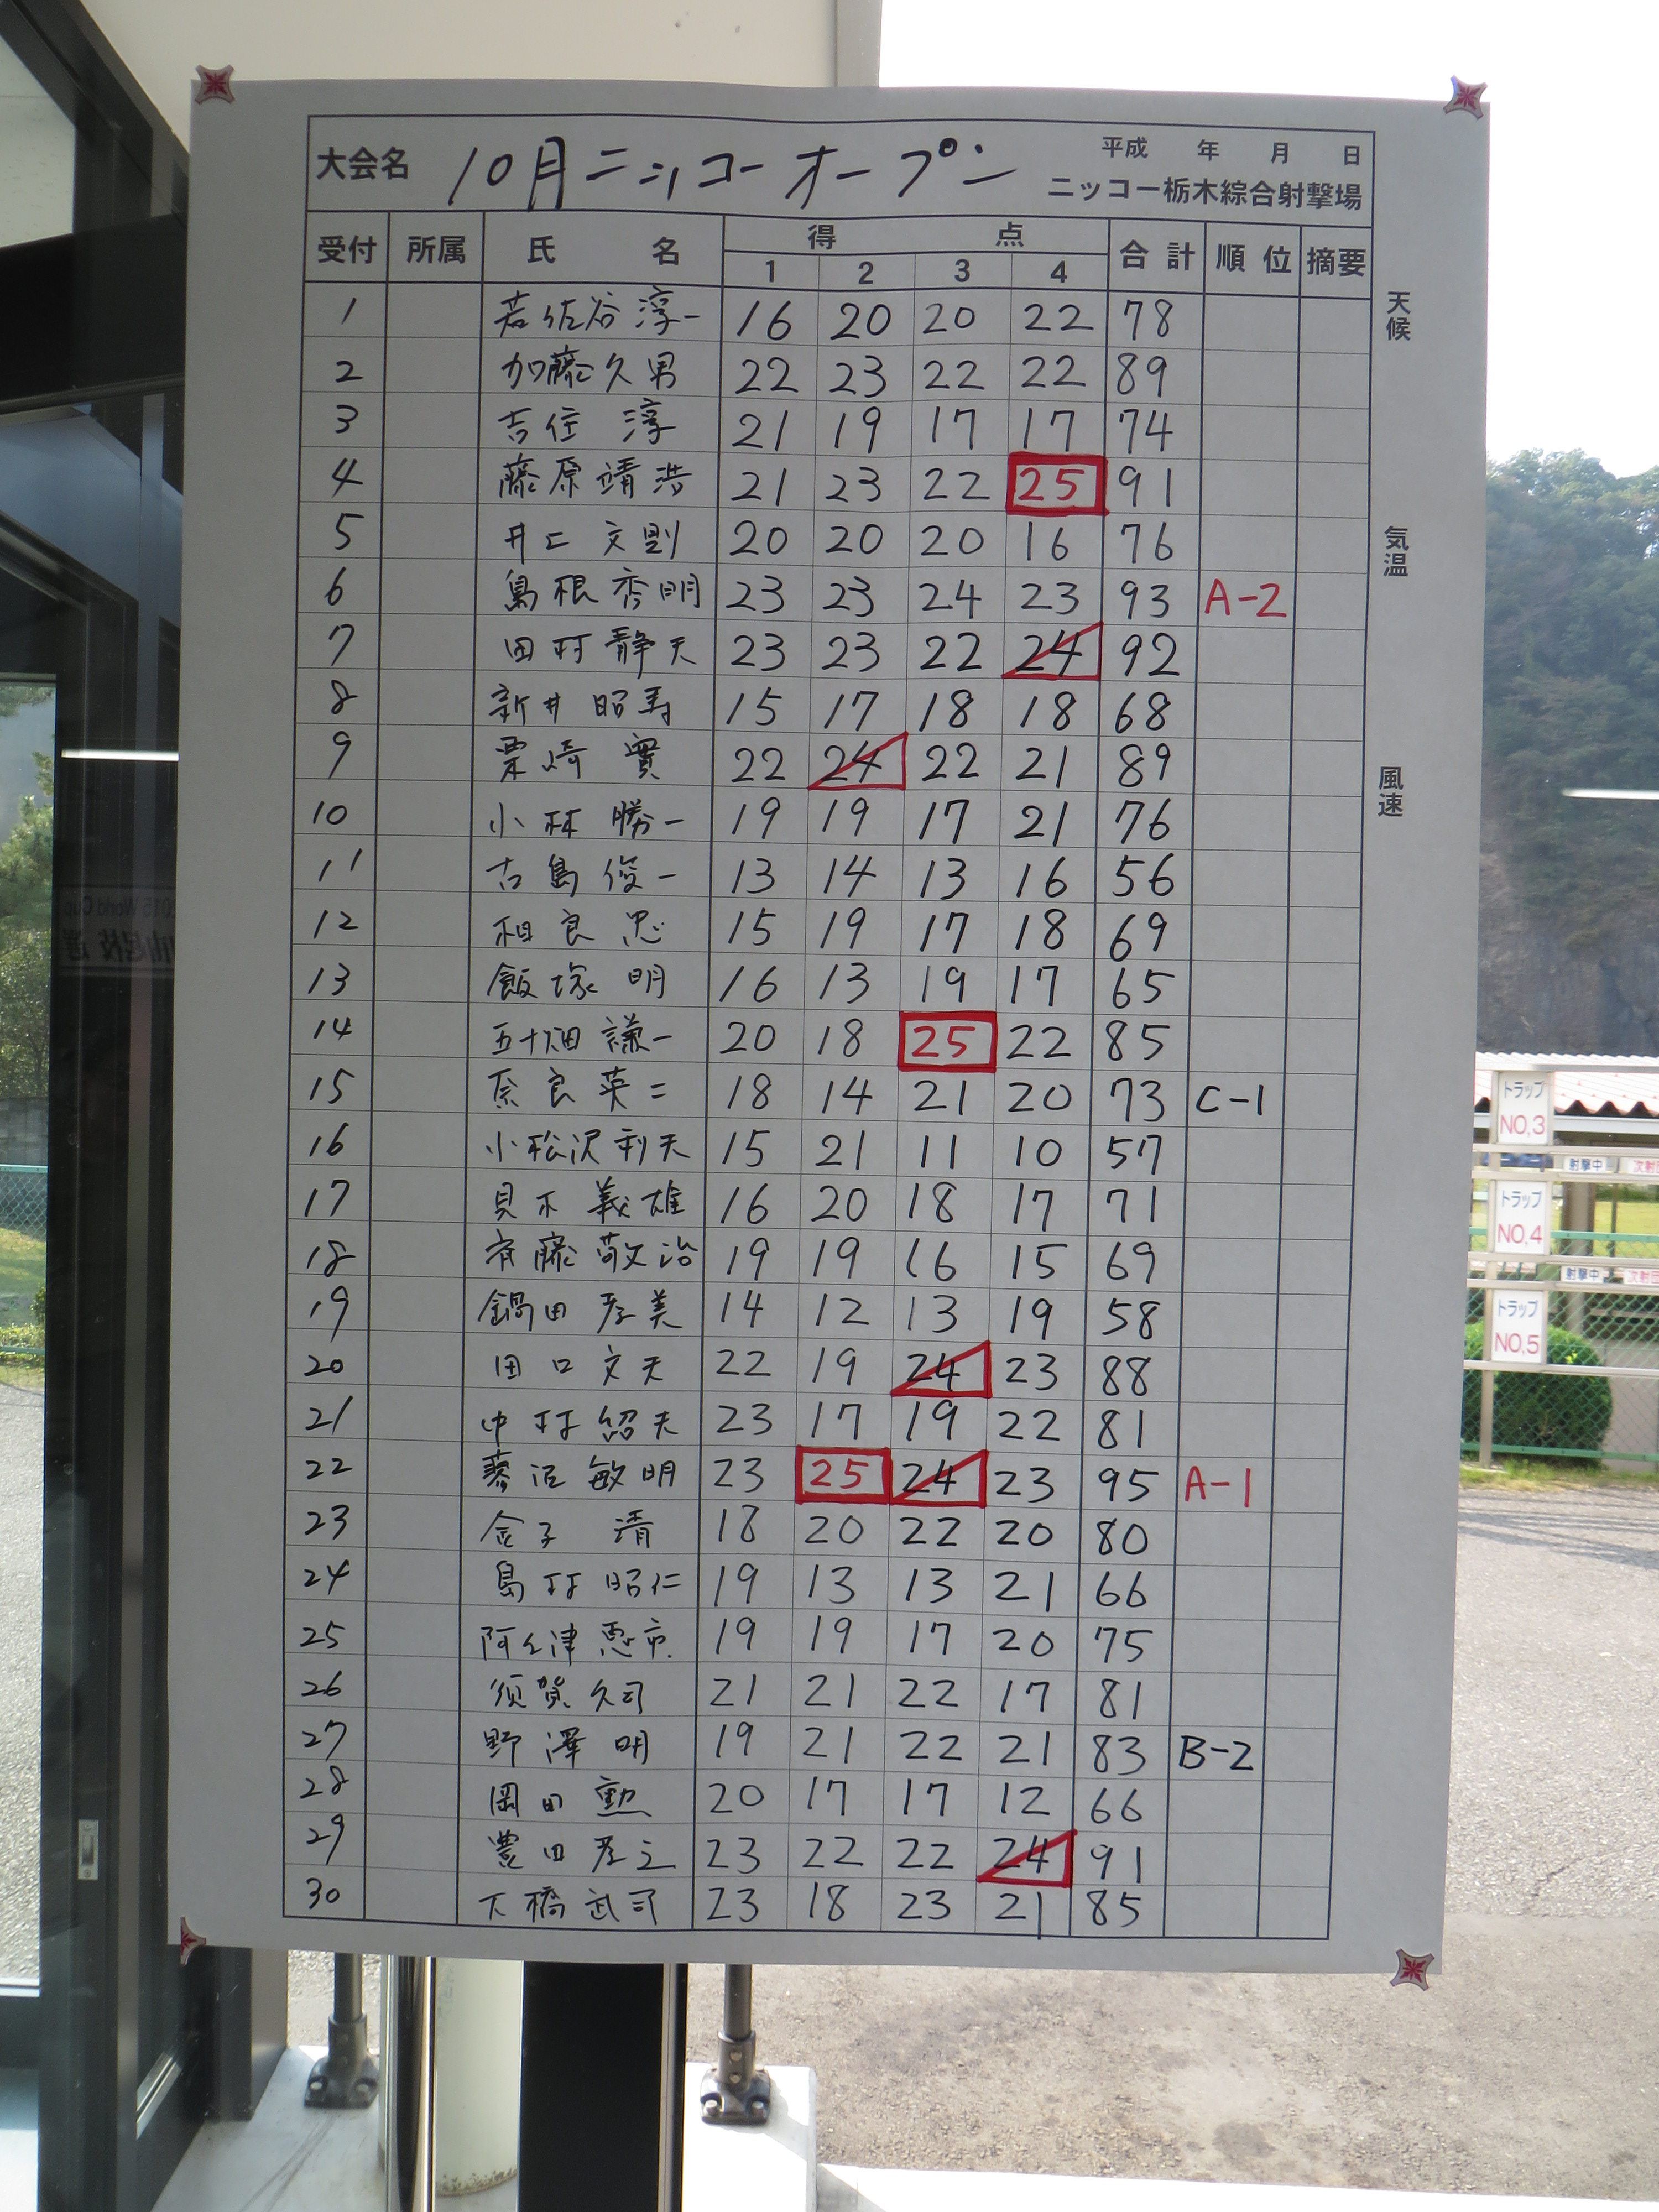 大会名 10月ニッコーオープン 平成 年 月 日
ニッコー栃木綜合射撃場
受付 所属 氏 名 得 点 合計 順位 摘要
1 2 3 4
1 若佐谷淳一 16 20 20 22 78
2 加藤久男 22 23 22 22 89
3 吉住 淳 21 19 17 17 74
4 藤原靖浩 21 23 22 25 91
5 井上文則 20 20 20 16 76
6 島根秀明 23 23 24 23 93 A-2
7 田村静夫 23 23 22 24 92
8 新井昭寿 15 17 18 18 68
9 栗崎 實 22 24 22 21 89
10 小林勝一 19 19 17 21 76
11 古島俊一 13 14 13 16 56
12 相良 忠 15 19 17 18 69
13 飯塚 明 16 13 19 17 65
14 五十畑謙一 20 18 25 22 85
15 奈良英二 18 14 21 20 73 C-1
16 小松沢利夫 15 21 11 10 57
17 貝木義雄 16 20 18 17 71
18 斉藤敬治 19 19 16 15 69
19 鍋田孝美 14 12 13 19 58
20 田口文夫 22 19 24 23 88
21 中村紹夫 23 17 19 22 81
22 蓼沼敏明 23 25 24 23 95 A-1
23 金子 清 18 20 22 20 80
24 島村昭仁 19 13 13 21 66
25 阿久津恵市 19 19 17 20 75
26 須賀久司 21 21 22 17 81
27 野澤 明 19 21 22 21 83 B-2
28 岡田 勲 20 17 17 12 66
29 豊田孝之 23 22 22 24 91
30 下橋武司 23 18 23 21 85
天候
気温
風速
トラップ
NO,3
射撃中
トラップ
NO,4
射撃中
トラップ
NO,5
2015 World Cup